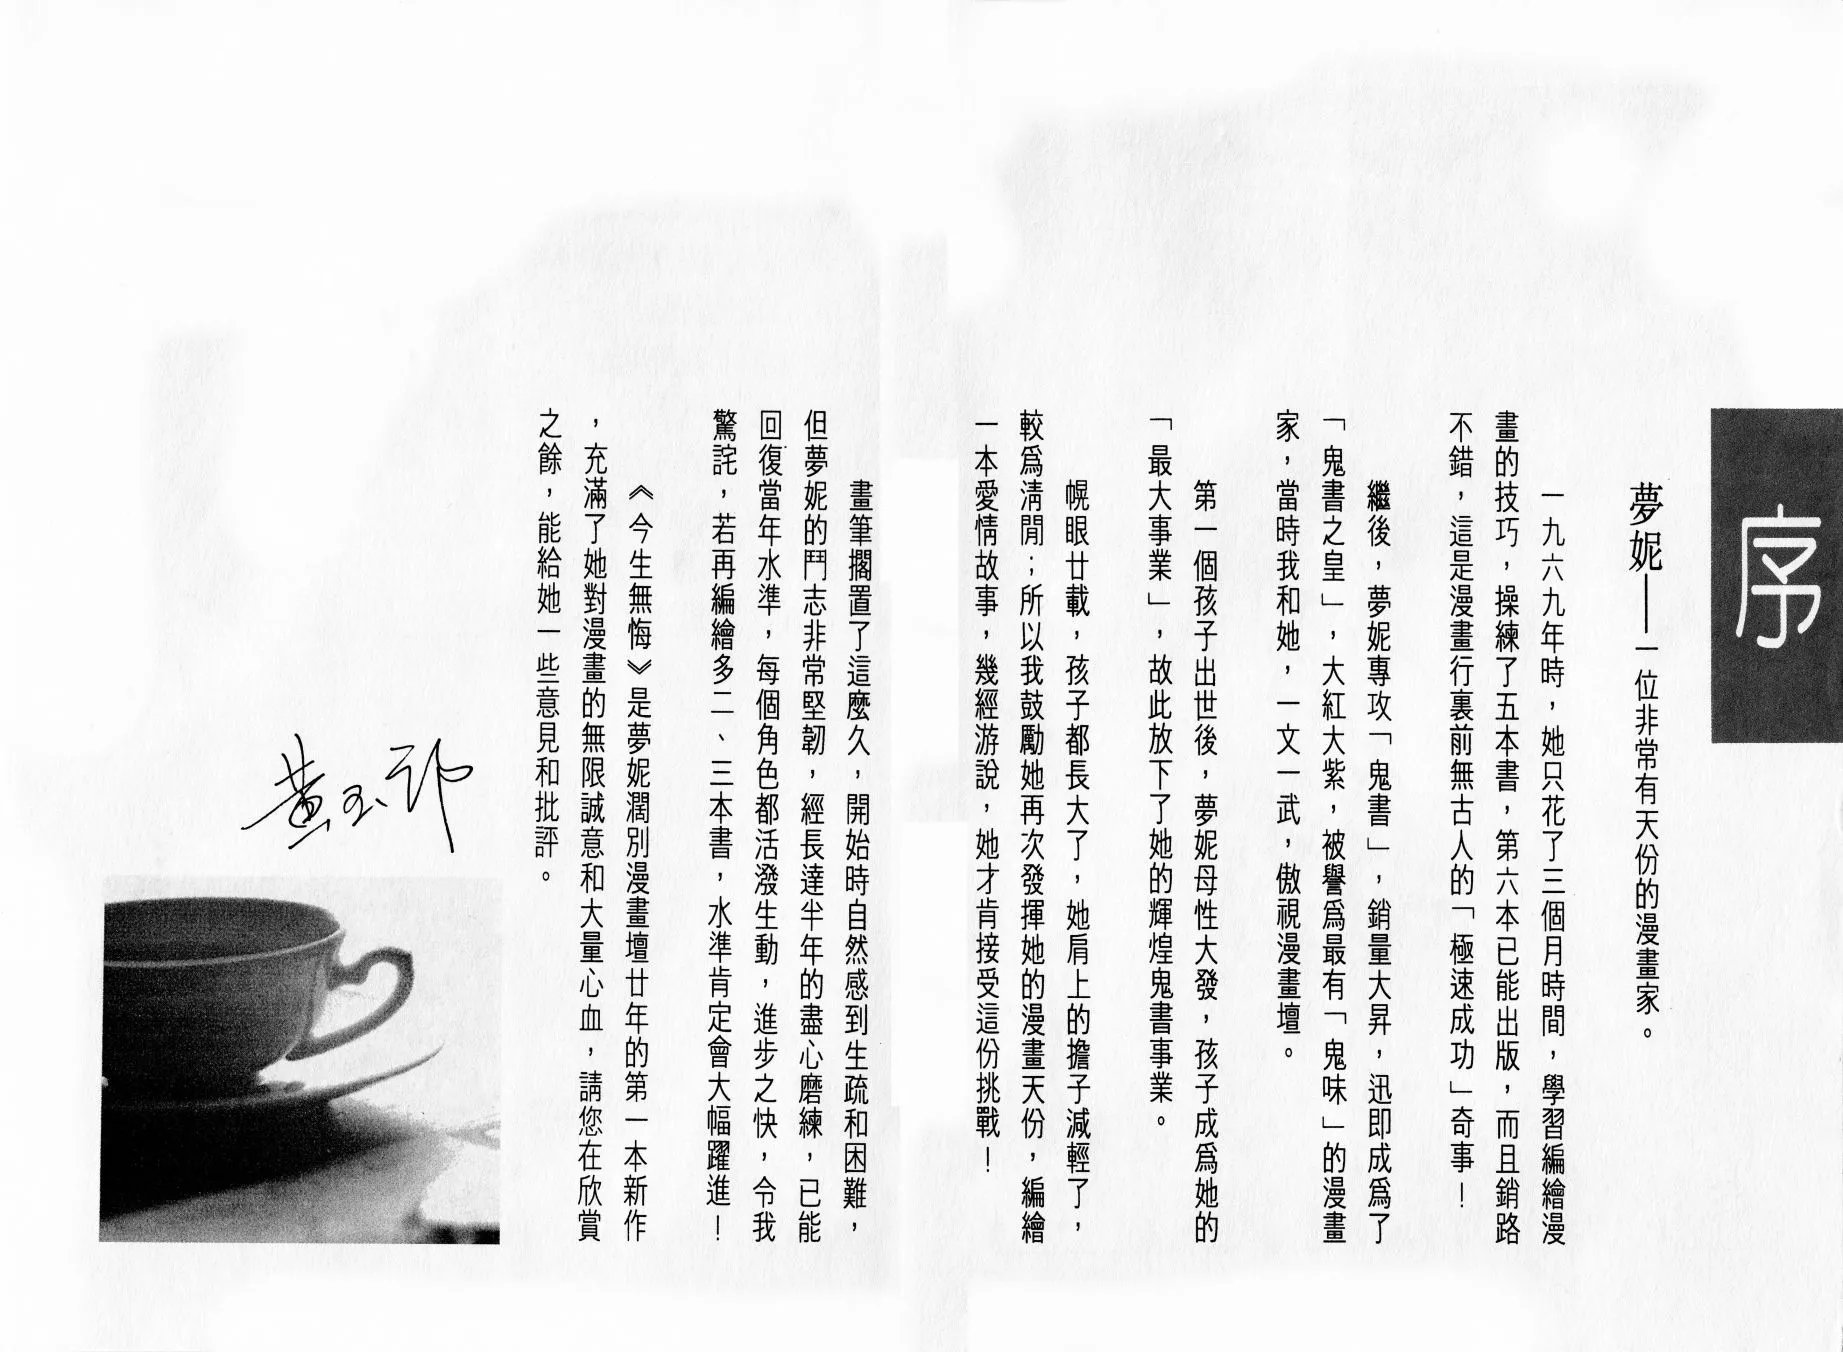 序
夢妮——一位非常有天份的漫畫家。
一九六九年時，她只花了三個月時間，學習編繪漫
畫的技巧，操練了五本書，第六本已能出版，而且銷路
不錯，這是漫畫行裏前無古人的「極速成功」奇事！
繼後，夢妮專攻「鬼書」，銷量大昇，迅即成爲了
「鬼書之皇」，大紅大紫，被譽爲最有「鬼味」的漫畫
家，當時我和她，一文一武，傲視漫畫壇。
第一個孩子出世後，夢妮母性大發，孩子成爲她的
「最大事業」，故此放下了她的輝煌鬼書事業。
幌眼廿載，孩子都長大了，她肩上的擔子減輕了，
較爲淸閒；所以我鼓勵她再次發揮她的漫畫天份，編繪
一本愛情故事，幾經游說，她才肯接受這份挑戰！
畫筆擱置了這麼久，開始時自然感到生疏和困難，
但夢妮的鬥志非常堅韌，經長達半年的盡心磨練，已能
回復當年水準，每個角色都活潑生動，進步之快，令我
驚詫，若再編繪多二、三本書，水準肯定會大幅躍進！
《今生無悔》是夢妮濶別漫畫壇廿年的第一本新作
，充滿了她對漫畫的無限誠意和大量心血，請您在欣賞
之餘，能給她一些意見和批評。
黃玉郎